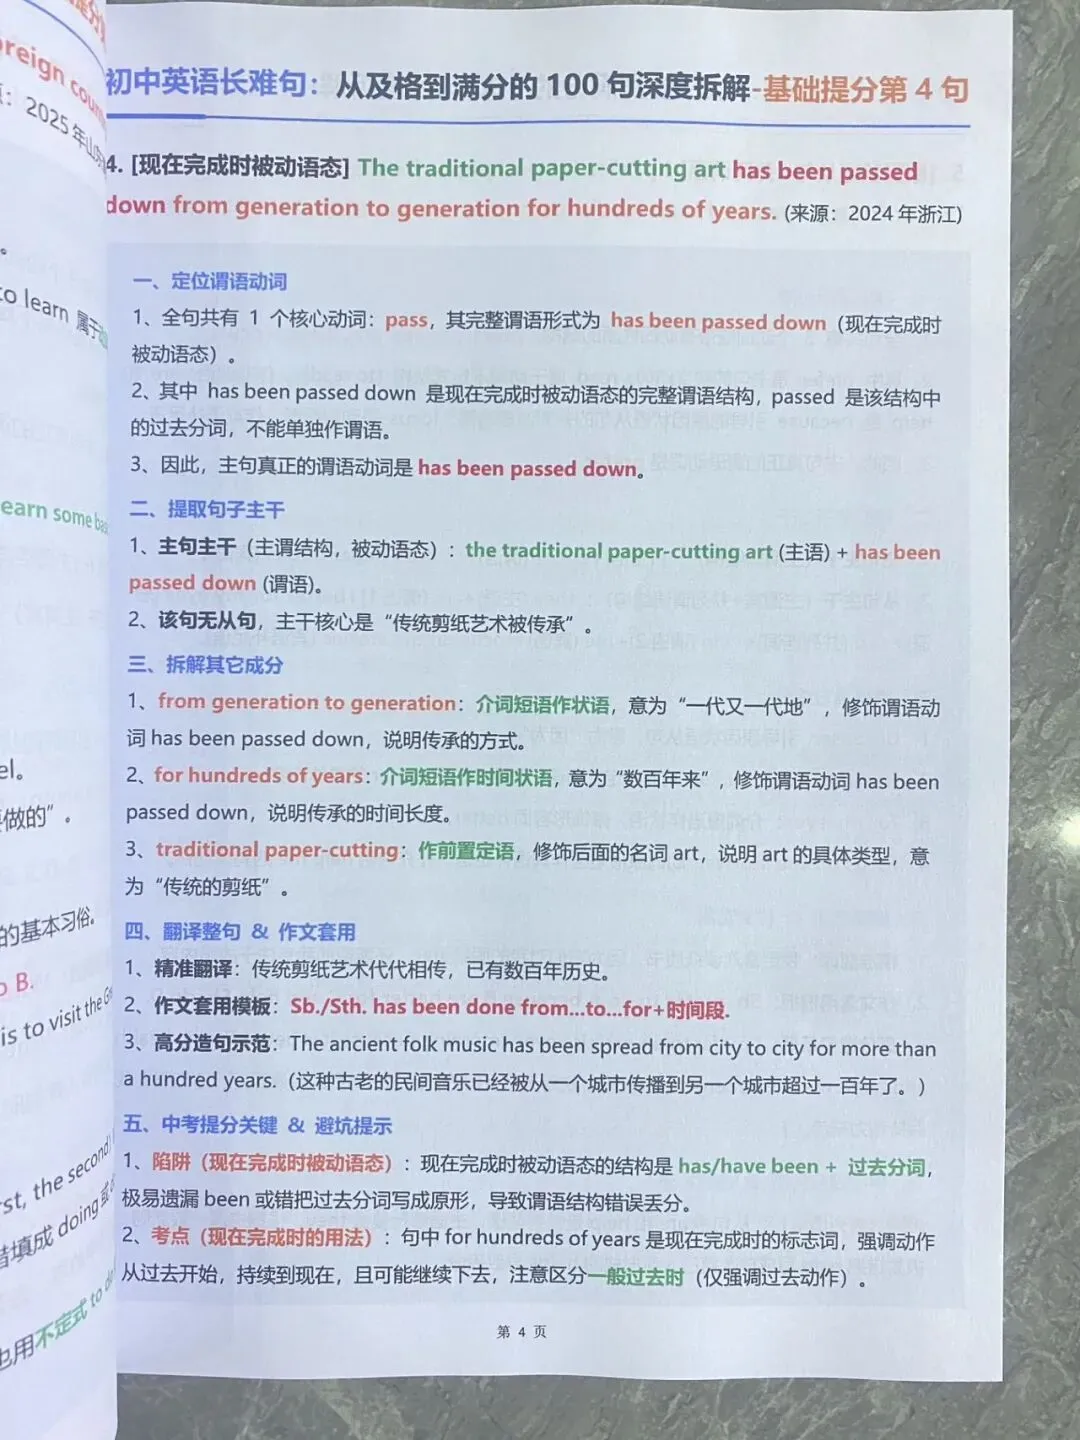 初中英语长难句：从及格到满分的 100 句深度拆解-基础提分第 4 句
4. [现在完成时被动语态] The traditional paper-cutting art has been passed
down from generation to generation for hundreds of years. (来源：2024 年浙江)
一、定位谓语动词
1、全句共有 1 个核心动词：pass，其完整谓语形式为 has been passed down（现在完成时
被动语态）。
2、其中 has been passed down 是现在完成时被动语态的完整谓语结构，passed 是该结构中
的过去分词，不能单独作谓语。
3、因此，主句真正的谓语动词是 has been passed down。
二、提取句子主干
1、主句主干（主谓结构，被动语态）：the traditional paper-cutting art (主语) + has been
passed down (谓语)。
2、该句无从句，主干核心是“传统剪纸艺术被传承”。
三、拆解其它成分
1、from generation to generation：介词短语作状语，意为“一代又一代地”，修饰谓语动
词 has been passed down，说明传承的方式。
2、for hundreds of years：介词短语作时间状语，意为“数百年来”，修饰谓语动词 has been
passed down，说明传承的时间长度。
3、traditional paper-cutting：作前置定语，修饰后面的名词 art，说明 art 的具体类型，意
为“传统的剪纸”。
四、翻译整句 & 作文套用
1、精准翻译：传统剪纸艺术代代相传，已有数百年历史。
2、作文套用模板：Sb./Sth. has been done from...to...for+时间段.
3、高分造句示范：The ancient folk music has been spread from city to city for more than
a hundred years.（这种古老的民间音乐已经被从一个城市传播到另一个城市超过一百年了。）
五、中考提分关键 & 避坑提示
1、陷阱（现在完成时被动语态）：现在完成时被动语态的结构是 has/have been + 过去分词，
极易遗漏 been 或错把过去分词写成原形，导致谓语结构错误丢分。
2、考点（现在完成时的用法）：句中 for hundreds of years 是现在完成时的标志词，强调动作
从过去开始，持续到现在，且可能继续下去，注意区分一般过去时（仅强调过去动作）。
第 4 页
reign coun
2025 年山东
to learn 属于
earn some bas
el.
做的”。
的基本习俗。
o B.
is to visit the Gre
st, the second
错填成 doing 或
也用不定式 to do